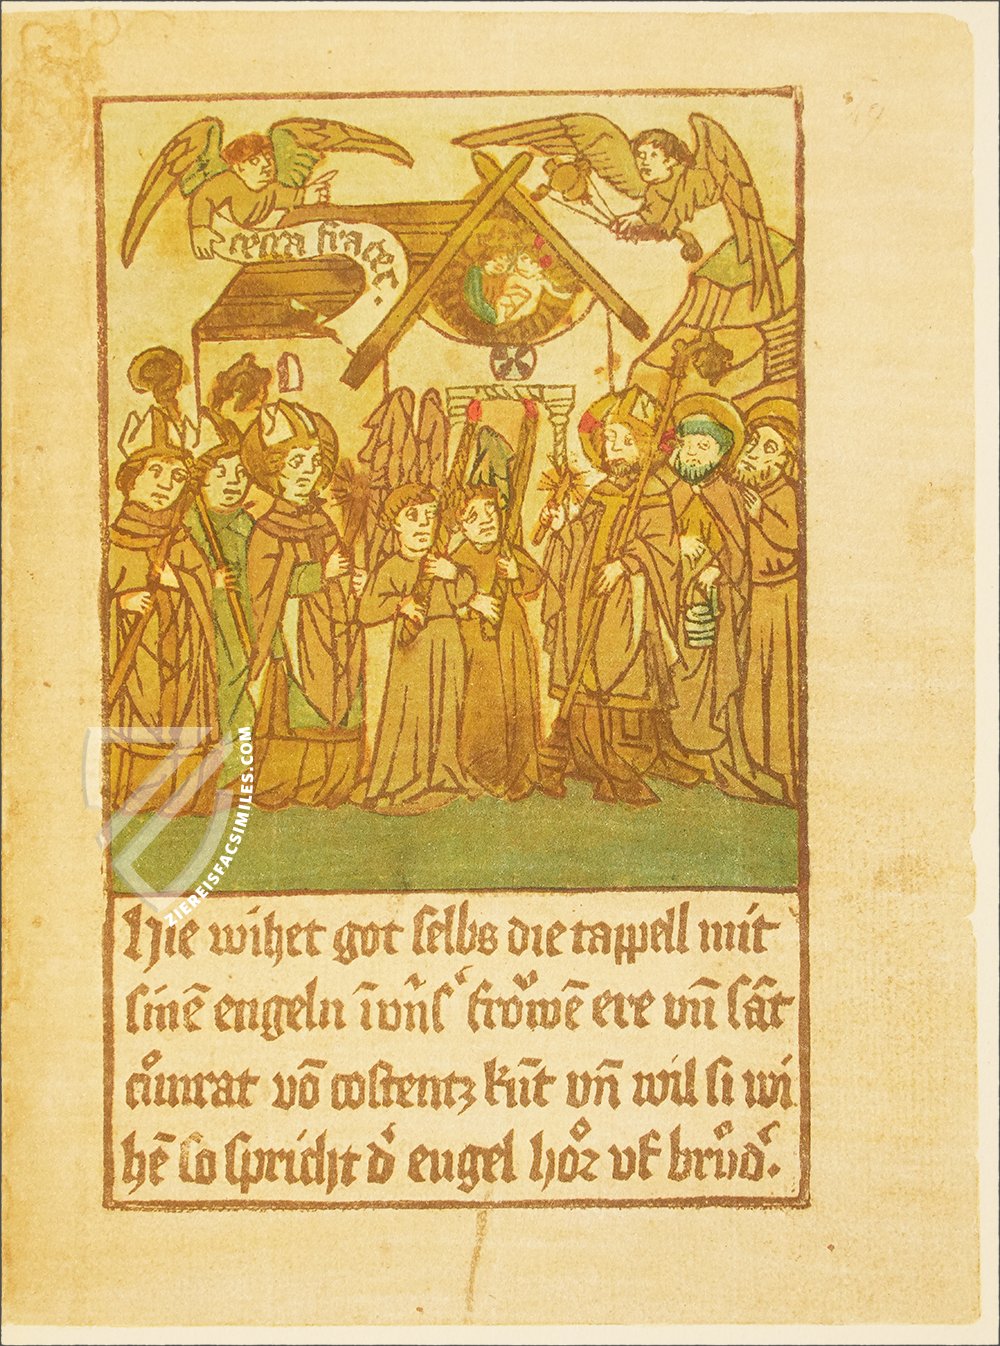 cecca frater.
Hie wihet got selbs die cappell mit
sinē engeln ī vns͛ froͮwē ere vn̄ sāt
cuͦnrat vō costentz kūt vn̄ wil si wi
hē so spricht d͛ engel hoͤr vf bruͦd͛.
ZIEREISFACSIMILES.COM